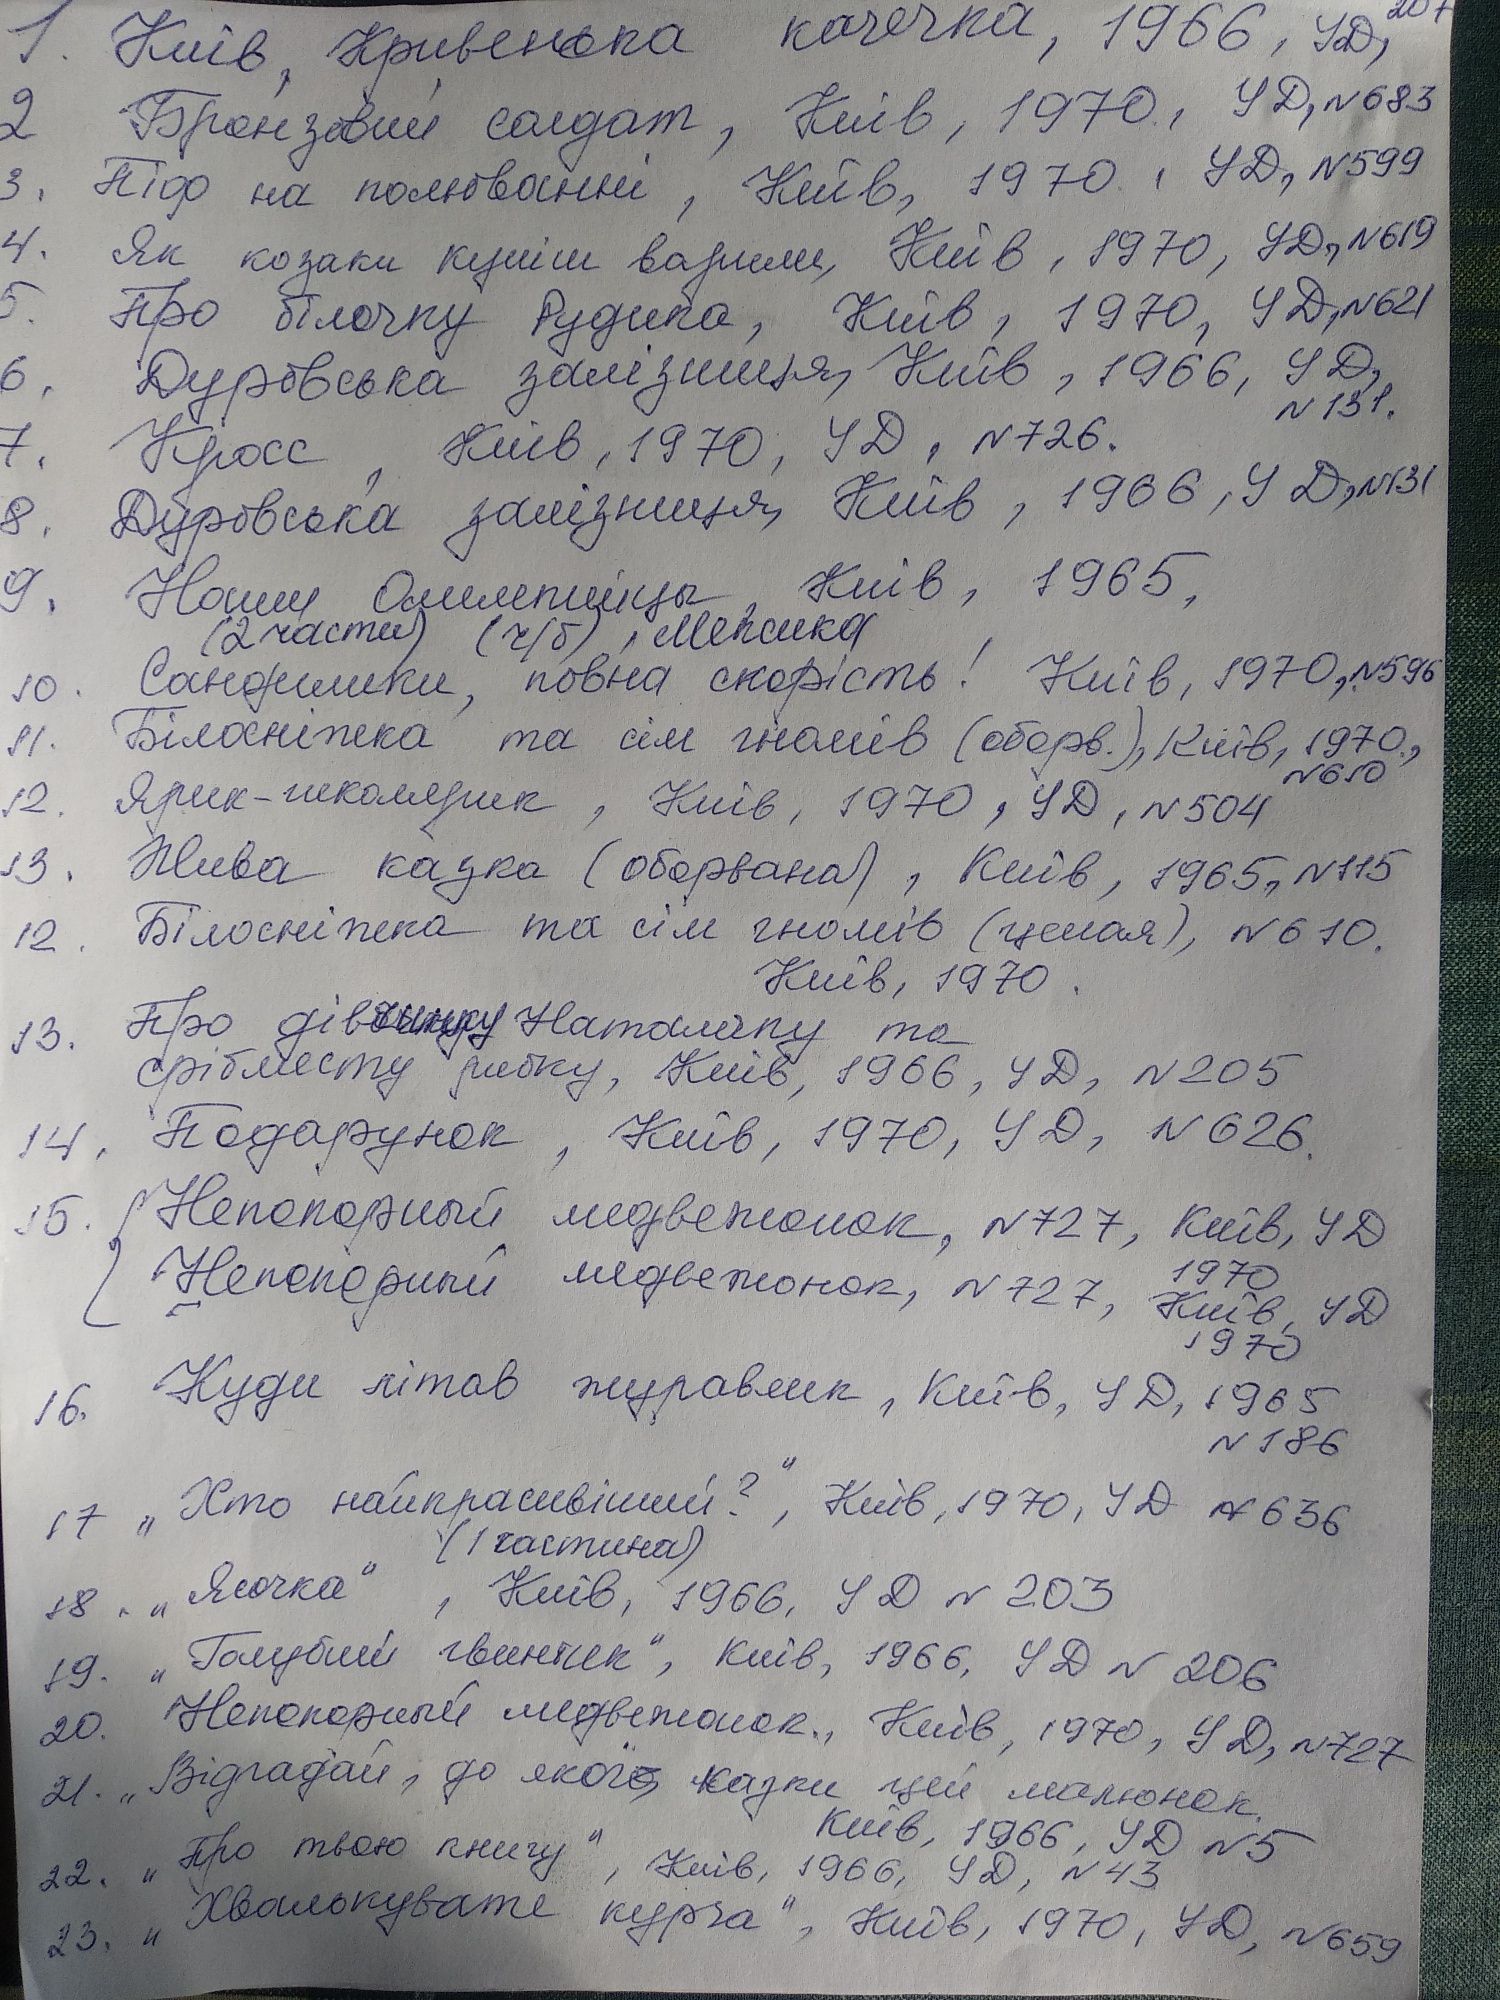 1. Київ, Кривенька качечка, 1966, УД, 207
2 Бронзовий солдат, Київ, 1970, УД, N683
3. Піф на полюванні, Київ, 1970, УД, N599
4. Як козаки куліш варили, Київ, 1970, УД, N619
5. Про білочку Рудика, Київ, 1970, УД, N621
6. Дуровська залізниця, Київ, 1966, УД,
N131.
7. Кросс, Київ, 1970, УД, N726.
8. Дуровська залізниця, Київ, 1966, УД, N131
9. Наши Олимпийцы, Київ, 1965,
(2 части) (ч/б), Мексика
10. Санфилики, повна скорість! Київ, 1970, N596
11. Білосніжка та сім гномів (оборв.), Київ, 1970,
N610
12. Ярик-школярик, Київ, 1970, УД, N504
13. Жива казка (оборвана), Київ, 1965, N115
12. Білосніжка та сім гномів (целая), N610.
Київ, 1970.
13. Про дівчинку Наталочку та
сріблясту рибку, Київ, 1966, УД, N205
14. Подарунок, Київ, 1970, УД, N626.
15. Непокорный медвежонок, N727, Київ, УД
1970
Непокорный медвежонок, N727, Київ, УД
1970
16. Куди літав журавлик, Київ, УД, 1965
N186
17 „Хто найкрасивіший?", Київ, 1970, УД N636
(1 частина)
18. „Ясочка", Київ, 1966, УД N203
19. „Голубий гвинтик", Київ, 1966, УД N206
20. Непокорный медвежонок., Київ, 1970, УД, N727
21. „Відгадай, до якої казки цей малюнок.
Київ, 1966, УД N5
22. „Про твою книгу", Київ, 1966, УД, N43
23. „Хвалькувате курча", Київ, 1970, УД, N659